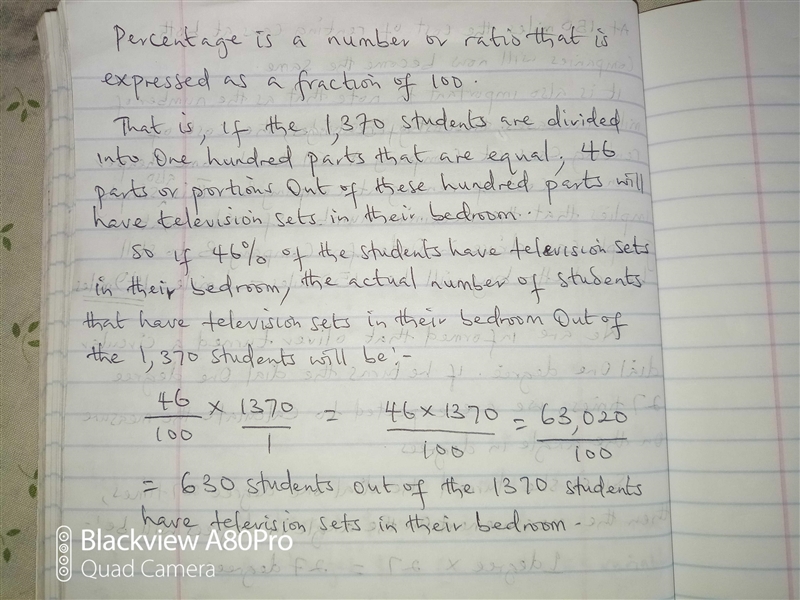 Percentage is a number or ratio that is
expressed as a fraction of 100.
That is, if the 1,370 students are divided
into One hundred parts that are equal, 46
parts or portions Out of these hundred parts will
have television sets in their bedroom..
So if 46% of the students have television sets
in their bedroom, the actual number of students
that have television sets in their bedroom Out of
the 1,370 students will be:-
46/100 × 1370/1 = 46 × 1370/100 = 63,020/100
= 630 students out of the 1370 students
have television sets in their bedroom.
Blackview A80Pro
Quad Camera